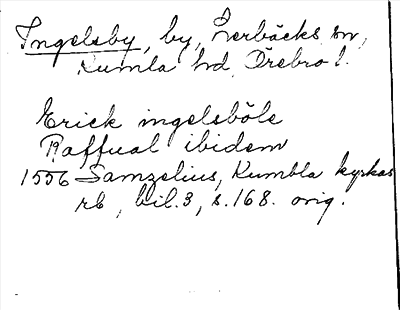 Ingelsby, by, Lerbäcks sn,
Kumla hd, Örebro l.
Erick ingelsböle
Raffual ibidem
1556 Samzelius, Kumbla kyrkas
rb, bil. 3, s. 168. orig.